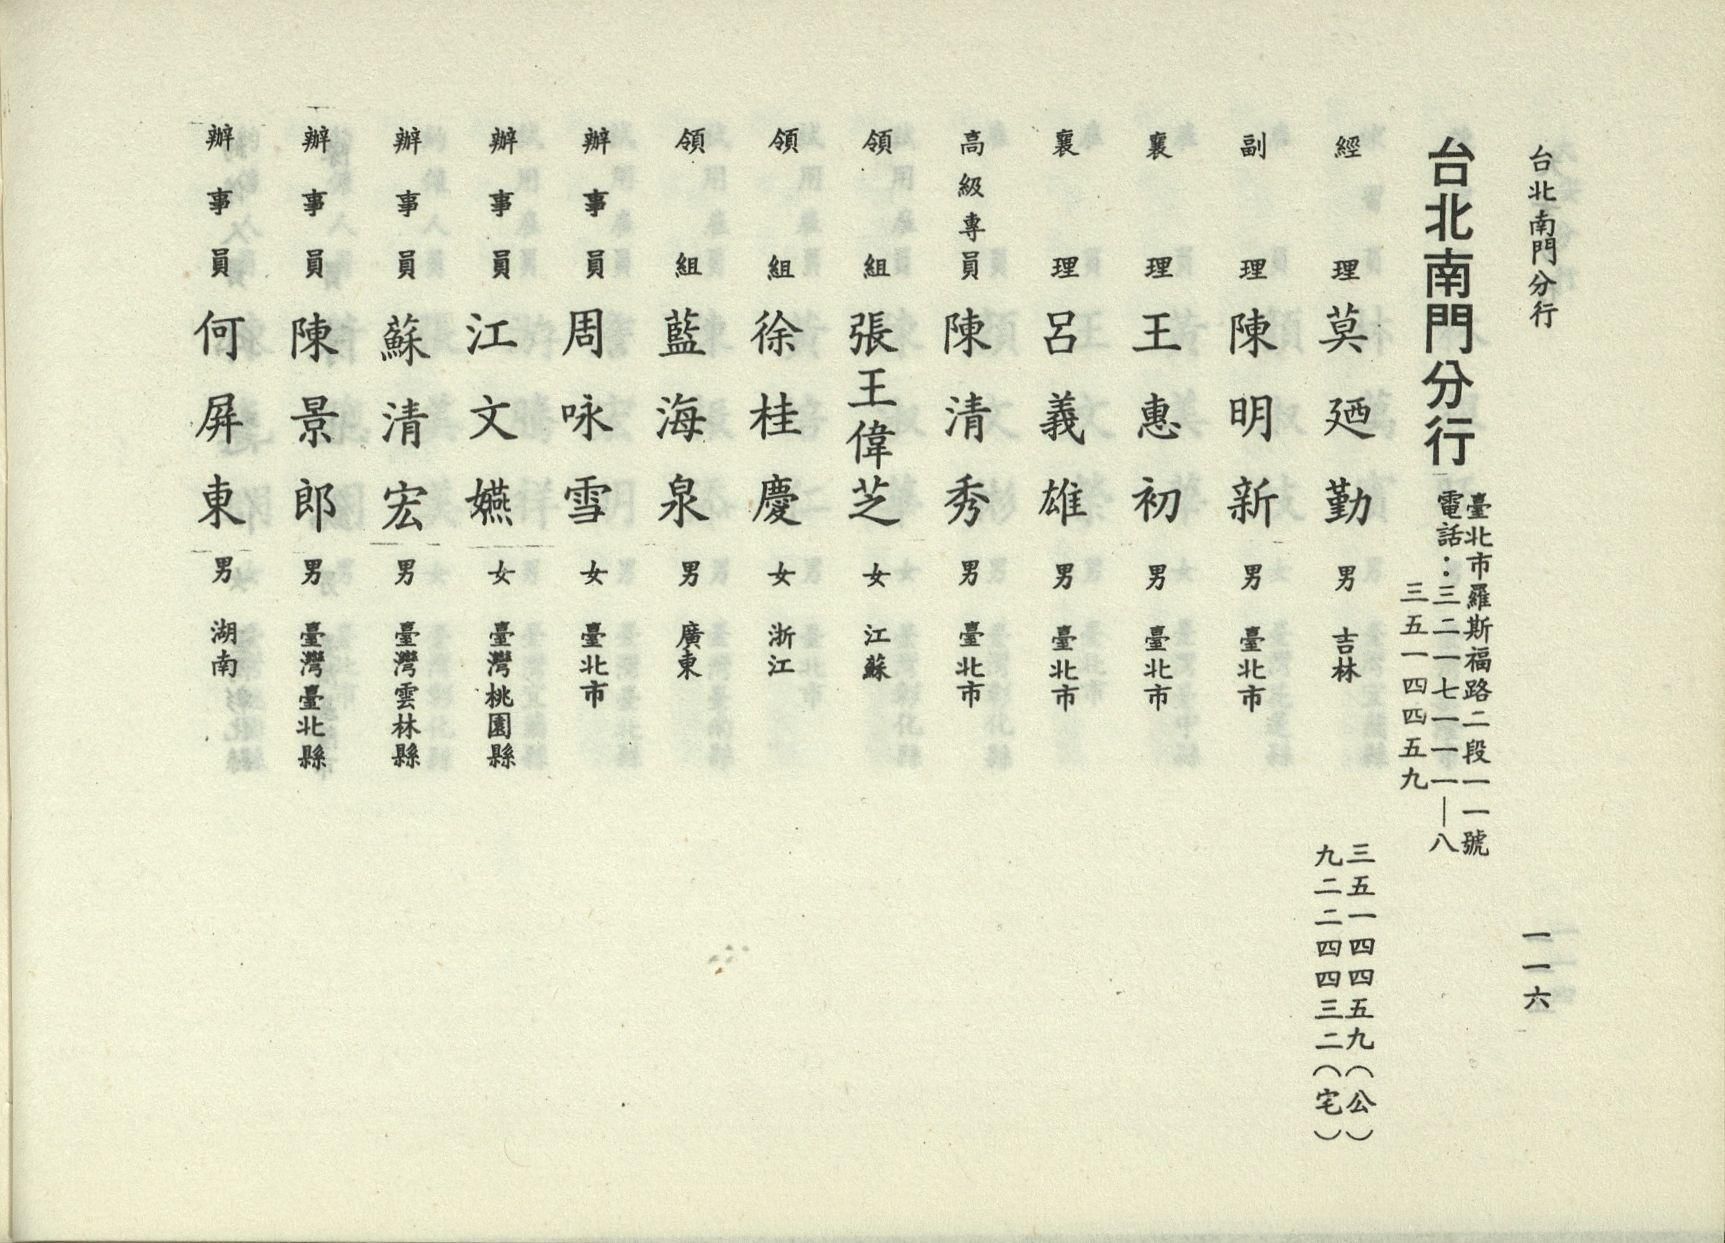 台北南門分行
一一六
台北南門分行
臺北市羅斯福路二段一一號
電話：三二一七一一一—八
三五一四四五九
經理 莫廼勤 男 吉林
三五一四四五九（公）
九二二四四三二（宅）
副理 陳明新 男 臺北市
襄理 王惠初 男 臺北市
襄理 呂義雄 男 臺北市
高級專員 陳清秀 男 臺北市
領組 張王偉芝 女 江蘇
領組 徐桂慶 女 浙江
領組 藍海泉 男 廣東
辦事員 周咏雪 女 臺北市
辦事員 江文嬿 女 臺灣桃園縣
辦事員 蘇清宏 男 臺灣雲林縣
辦事員 陳景郎 男 臺灣臺北縣
辦事員 何屏東 男 湖南